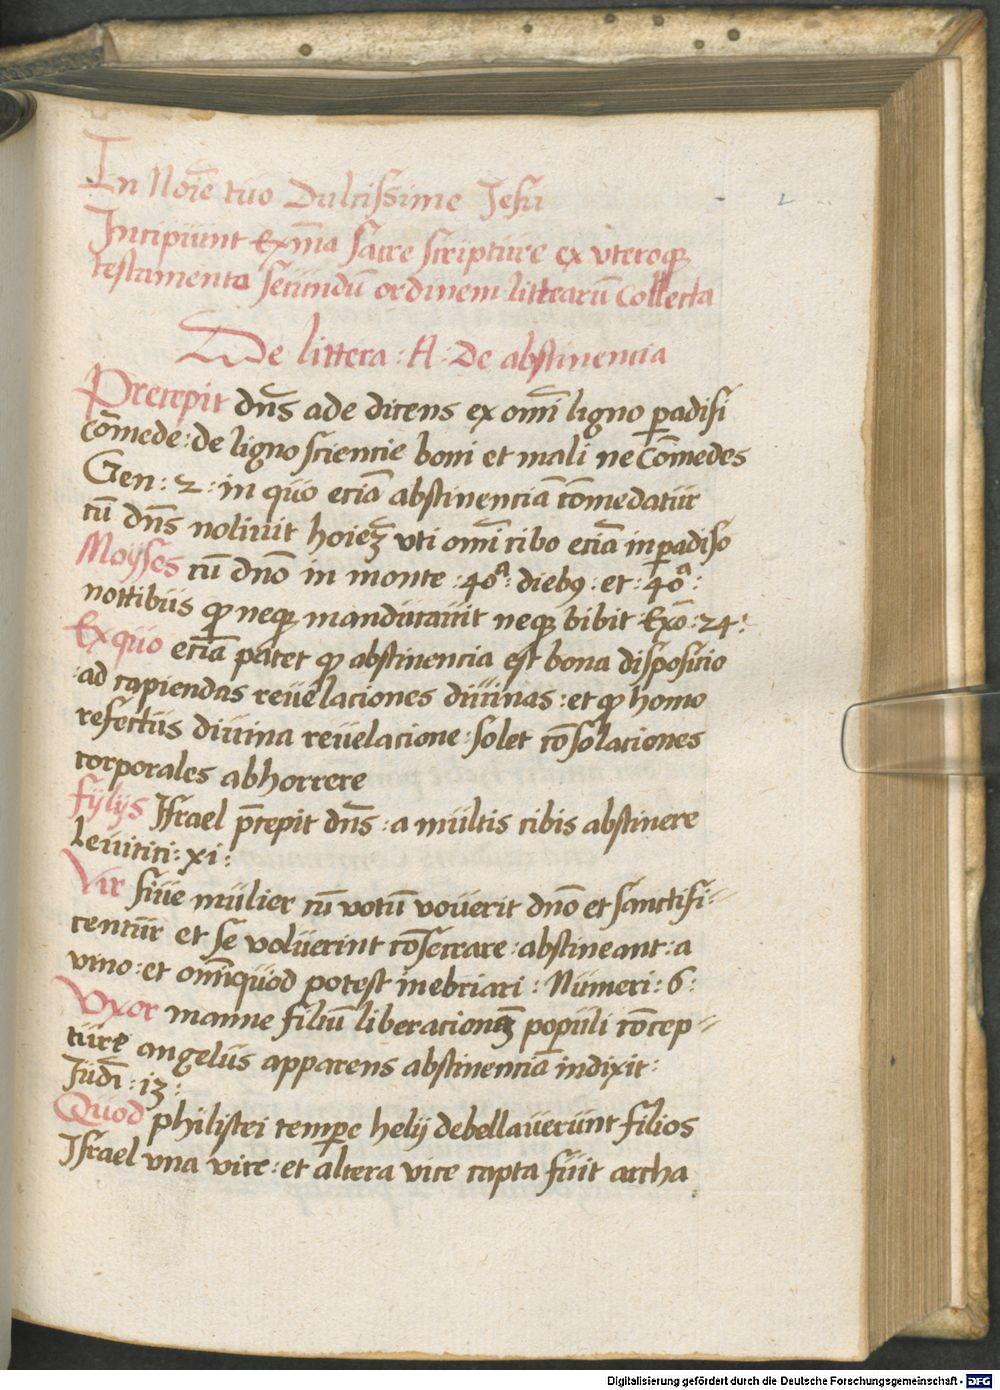 In Noīe tuo Dulcissime Jesu
2
Incipiunt Exm̄a sacre scripture ex vteroqꝫ
testamenta secundū ordinem littearū collecta
De littera : A · De abstinencia
Precepit dn̄s ade dicens ex omī ligno ꝑadisi
cōmede : de ligno sciencie boni et mali ne cōmedes
Gen : 2 : in quo eciā abstinenciā cōmedatur
cū dn̄s noluit hoiēꝫ vti omī cibo eciā in ꝑadiso
Moyses cū dn̄o in monte : 40ᵃ : diebꝰ : et : 40ᵃ :
nottibus ꝙ neqꝫ manducauit neqꝫ bibit Exō : 24 :
Ex quo eciā patet ꝙ abstinencia est bona disposicio
ad capiendas reuelaciones diuinas : et ꝙ homo
refectus diuina reuelacione : solet cōsolaciones
corporales abhorrere
fylijs Israel p̄cepit dn̄s : a multis cibis abstinere
Leuitici : xi :
Vir siue mulier cū votū vouerit dn̄o et sanctifi-
centur et se voluerint cōsecrare : abstineant : a
vino : et om̄iquod potest inebriari : Numeri : 6 :
Vxor manne filiū liberacionꝫ populi concep-
ture angelus apparens abstinenciā indixit :
Judī : i3 :
Quod philistei tempe helij debellauerunt filios
Israel vna vice : et altera vice capta fuit archa
Digitalisierung gefördert durch die Deutsche Forschungsgemeinschaft - DFG